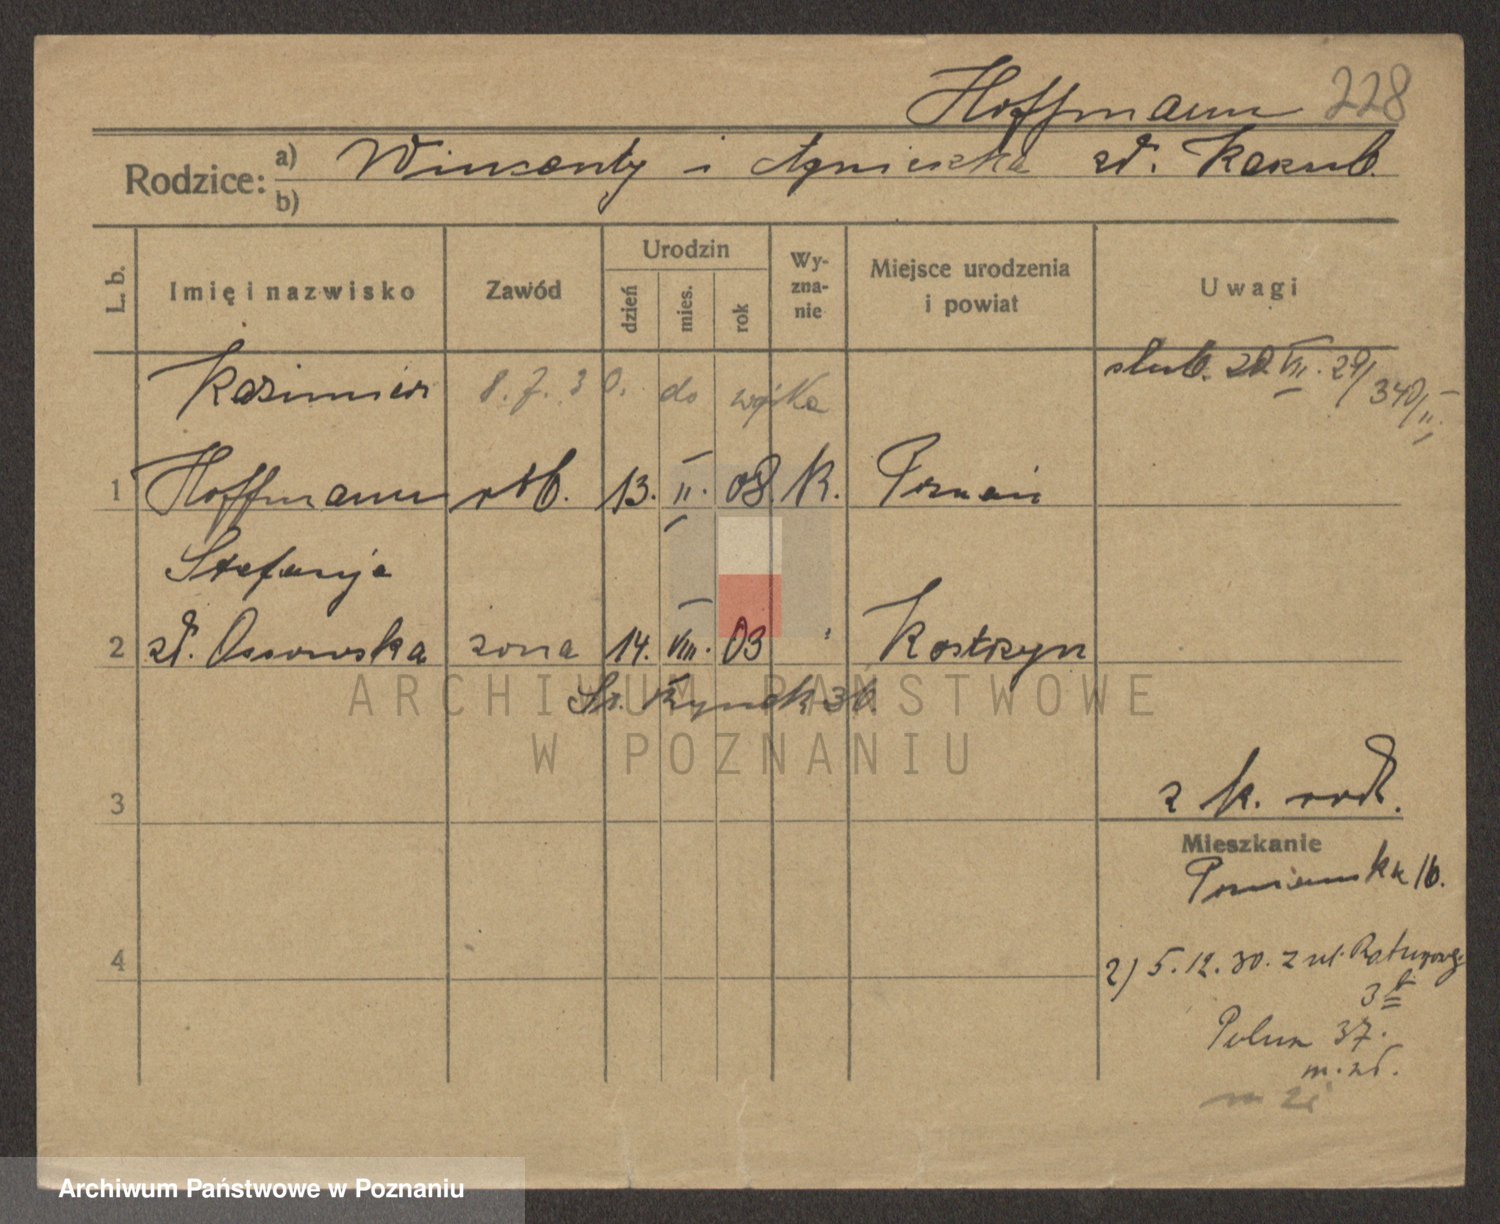 Hoffmann 228
Rodzice: a) Wincenty i Agnieszka zd. Kaszub.
b)
L. b. Imię i nazwisko Zawód Urodzin dzień mies. rok Wy-zna-nie Miejsce urodzenia i powiat Uwagi
Kazimierz 8.7.30. do wojska ślub. 20 VII. 29/340/II
1 Hoffmann rob. 13. II. 08. K. Poznań
Stefanja
2 zd. Ossowska żona 14. VIII. 03 " Kostrzyn
St. Rynek 36.
3 z k. rodz.
Mieszkanie
16.
4 2) 5.12.30. z ul.
3
37.
ARCHIWUM PAŃSTWOWE
W POZNANIU
Archiwum Państwowe w Poznaniu